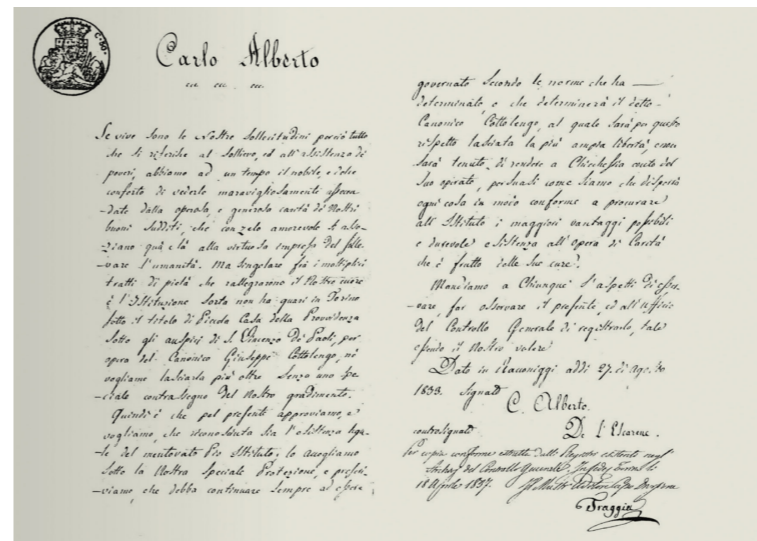 C. 50.
Carlo Alberto
ec. ec. ec.
Se vive sono le Nostre Sollecitudini perciò tutto
che si riferisce al Sollievo, ed all'assistenza de'
poveri, abbiamo ad un tempo il nobile, e dolce
conforto di vederle maravigliosamente assecon-
-date dalla operosa, e generosa carità de' Nostri
buoni Sudditi, che con zelo amorevole s'asso-
-ziano quà e là alla virtuosa impresa del solle-
-vare l'umanità. Ma singolare fra i moltiplici
tratti di pietà che rallegrarono il Nostro cuore
è l'Istituzione Sorta non ha guari in Torino
sotto il titolo di Piccola Casa della Provvidenza
Sotto gli auspicj di S. Vincenzo De' Paoli, per
opera del Canonico Giuseppe Cottolengo, nè
vogliamo lasciarla più oltre Senza uno spe-
-ciale contrassegno del Nostro gradimento.
Quindi è che pel presente approviamo, e
vogliamo, che riconosciuta sia l'esistenza lega-
-le del mentovato Pio Istituto; lo accogliamo
Sotto la Nostra Speciale Protezione, e prescri-
-viamo, che debba continuare Sempre ad essere
governato Secondo le norme che ha
determinato, e che determinerà il detto
Canonico Cottolengo, al quale Sarà per questo
rispetto lasciata la più ampia libertà,
Sarà tenuto di rendere a Chicchessia conto del
Suo operato, persuasi come Siamo che disporrà
ogni cosa in modo conforme a procurare
all'Istituto i maggiori vantaggi possibili
e durevole esistenza all'opera di Carità
che è frutto delle Sue cure.
Mandiamo a Chiunque S'aspetti di osser-
-vare, far osservare il presente, ed all'Ufficio
del Controllo Generale di registrarlo, tale
essendo il Nostro volere.
Dato in Racconiggi addì 27. di Agosto
1833. Signato
C. Alberto.
controsegnato De L'Escarene.
Per copia conforme estratta dalli Registri esistenti negli
Archivj del Controllo Generale. In fede, Torino li
18 Aprile 1837.
Traggia